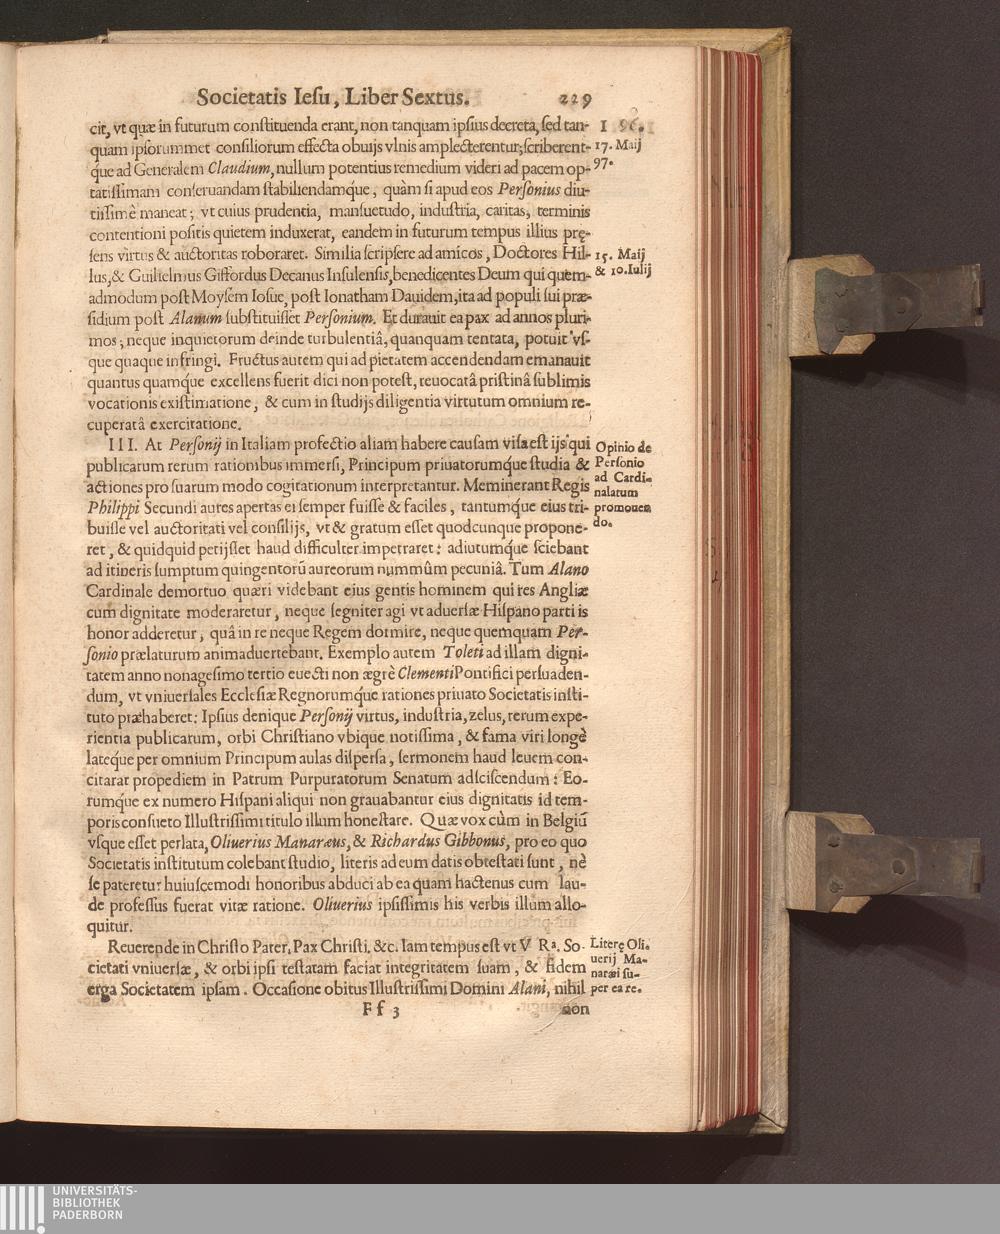 Societatis Iesu, Liber Sextus. 229
cit, vt quæ in futurum constituenda erant, non tanquam ipsius decreta, sed tan-
quam ipsorummet consiliorum effecta obuijs vlnis amplecterentur; scriberent-
q́ue ad Generalem Claudium, nullum potentius remedium videri ad pacem op-
tatissimam conseruandam stabiliendamq́ue, quàm si apud eos Personius diu-
tissimè maneat; vt cuius prudentia, mansuetudo, industria, caritas, terminis
contentioni positis quietem induxerat, eandem in futurum tempus illius prę-
sens virtus & auctoritas roboraret. Similia scripsere ad amicos, Doctores Hil-
lus, & Guilielmus Giffordus Decanus Insulensis, benedicentes Deum qui quem-
admodum post Moysem Iosue, post Ionatham Dauidem; ita ad populi sui præ-
sidium post Alanum substituisset Personium. Et durauit ea pax ad annos pluri-
mos; neque inquietorum deinde turbulentiâ, quanquam tentata, potuit vs-
que quaque infringi. Fructus autem qui ad pietatem accendendam emanauit
quantus quamq́ue excellens fuerit dici non potest, reuocatâ pristinâ sublimis
vocationis existimatione, & cum in studijs diligentia virtutum omnium re-
cuperatâ exercitatione.
I 96.
17. Maij
97.
15. Maij
& 10. Iulij
III. At Personij in Italiam profectio aliam habere causam visa est ijs qui
publicarum rerum rationibus immersi, Principum priuatorumq́ue studia &
actiones pro suarum modo cogitationum interpretantur. Meminerant Regis
Philippi Secundi aures apertas ei semper fuisse & faciles, tantumq́ue eius tri-
buisse vel auctoritati vel consilijs, vt & gratum esset quodcunque propone-
ret, & quidquid petijsset haud difficulter impetraret: adiutumq́ue sciebant
ad itineris sumptum quingentorũ aureorum nummûm pecuniâ. Tum Alano
Cardinale demortuo quæri videbant eius gentis hominem qui res Angliæ
cum dignitate moderaretur, neque segniter agi vt aduersæ Hispano parti is
honor adderetur, quâ in re neque Regem dormire, neque quemquam Per-
sonio prælaturum animaduertebant. Exemplo autem Toleti ad illam digni-
tatem anno nonagesimo tertio euecti non ægrè Clementi Pontifici persuaden-
dum, vt vniuersales Ecclesiæ Regnorumq́ue rationes priuato Societatis insti-
tuto præhaberet: Ipsius denique Personij virtus, industria, zelus, rerum expe-
rientia publicarum, orbi Christiano vbique notissima, & fama viri longè
lateq́ue per omnium Principum aulas dispersa, sermonem haud leuem con-
citarat propediem in Patrum Purpuratorum Senatum adsciscendum: Eo-
rumq́ue ex numero Hispani aliqui non grauabantur eius dignitatis id tem-
poris consueto Illustrissimi titulo illum honestare. Quæ vox cùm in Belgiũ
vsque esset perlata, Oliuerius Manaræus, & Richardus Gibbonus, pro eo quo
Societatis institutum colebant studio, literis ad eum datis obtestati sunt, nè
se pateretur huiuscemodi honoribus abduci ab ea quam hactenus cum lau-
de professus fuerat vitæ ratione. Oliuerius ipsissimis his verbis illum allo-
quitur.
Opinio de
Personio
ad Cardi-
nalatum
promouen
do.
Reuerende in Christo Pater, Pax Christi, &c. Iam tempus est vt V Rª. So-
cietati vniuersæ, & orbi ipsi testatam faciat integritatem suam, & fidem
erga Societatem ipsam. Occasione obitus Illustrissimi Domini Alani, nihil
Literę Oli-
uerij Ma-
naræi su-
per ea re.
Ff 3 non
UNIVERSITÄTS-
BIBLIOTHEK
PADERBORN